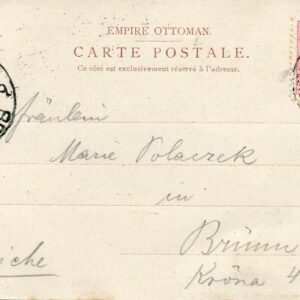 EMPIRE OTTOMAN.
CARTE POSTALE.
Ce côté est exclusivement réservé à l'adresse.
Fräulein
Marie Polaczek
in
Brünn
Kröna 4